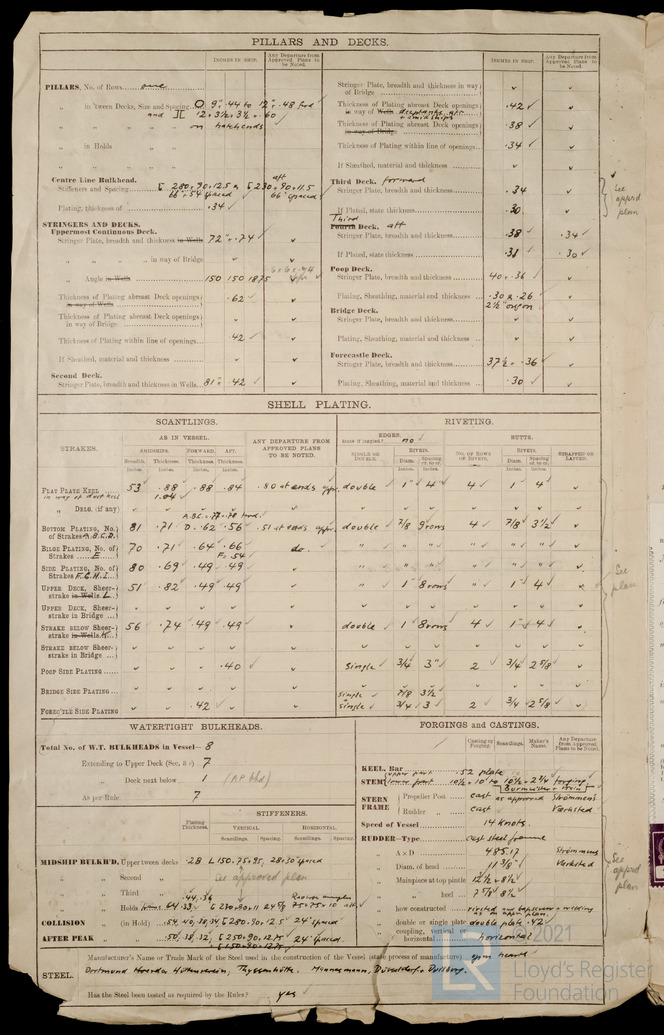 PILLARS AND DECKS.
INCHES IN SHIP.
Any Departure from Approved Plans to be Noted.
PILLARS, No. of Rows one
„ in 'tween Decks, Size and Spacing O 9" · 44 to 12" · 48 fwd
„ „ and ][ 12 × 3½ × 3½ × ·60
„ „ on hatchends
„ in Holds „
„ „ „
Centre Line Bulkhead.
Stiffeners and Spacing
66" & 54" spaced 66" spaced
Plating, thickness of ·34
STRINGERS AND DECKS.
Uppermost Continuous Deck.
Stringer Plate, breadth and thickness in Wells 72" × ·74
„ „ „ in way of Bridge
„ Angle in Wells 150 150 18.75
Thickness of Plating abreast Deck openings in way of Wells ·62
Thickness of Plating abreast Deck openings in way of Bridge
Thickness of Plating within line of openings ·42
If Sheathed, material and thickness
Second Deck.
Stringer Plate, breadth and thickness in Wells 81" × ·42
INCHES IN SHIP.
Any Departure from Approved Plans to be Noted.
Stringer Plate, breadth and thickness in way of Bridge
Thickness of Plating abreast Deck openings in way of Wells deeptanks aft ·42
Thickness of Plating abreast Deck openings in way of Bridge + amidships ·38
Thickness of Plating within line of openings ·34
If Sheathed, material and thickness
Third Deck. forward
Stringer Plate, breadth and thickness ·34
If Plated, state thickness ·30
Third
Fourth Deck. aft
Stringer Plate, breadth and thickness ·38 ·34
If Plated, state thickness ·31 ·30
Poop Deck.
Stringer Plate, breadth and thickness 40 × ·36
Plating, Sheathing, material and thickness ·30 & ·26
2½" oregon
Bridge Deck.
Stringer Plate, breadth and thickness
Plating, Sheathing, material and thickness
Forecastle Deck.
Stringer Plate, breadth and thickness 37½ × ·36
Plating, Sheathing, material and thickness ·30
See apprd plan
SHELL PLATING.
SCANTLINGS.
RIVETING.
STRAKES.
AS IN VESSEL.
ANY DEPARTURE FROM APPROVED PLANS TO BE NOTED.
EDGES.
State if joggled? no
BUTTS.
AMIDSHIPS. FORWARD. AFT.
SINGLE OR DOUBLE.
RIVETS.
NO. OF ROWS OF RIVETS.
RIVETS.
STRAPPED OR LAPPED.
Breadth. Thickness. Thickness. Thickness.
Diam. Spacing cr. to cr.
Diam. Spacing cr. to cr.
Inches. Inches. Inches. Inches.
FLAT PLATE KEEL 53 ·88 ·88 ·84 ·80 at ends appr. double 1" 4" 4 1" 4"
in way of duct keel 1.04
„ DBLG. (if any)
BOTTOM PLATING, No. of Strakes A.B.C.D. 81 ·71 D. ·62 ·56 ·51 at ends appr. double 7/8 9 rows 4 7/8 3½
BILGE PLATING, No. of Strakes E 70 ·71 ·64 ·66 do. „ „ „ „ „ „
F = 54
SIDE PLATING, No. of Strakes F.G.H.J. 80 ·69 ·49 ·49 „ „ „ „ „ „
UPPER DECK, Sheerstrake in Wells L 51 ·82 ·49 ·49 „ 1" 8 rows „ 1" 4
UPPER DECK, Sheerstrake in Bridge
STRAKE BELOW Sheerstrake in Wells K 56 ·74 ·49 ·49 double 1" 8 rows 4 1" 4
STRAKE BELOW Sheerstrake in Bridge
POOP SIDE PLATING ·40 single 3/4 3" 2 3/4 2 5/8
BRIDGE SIDE PLATING single 7/8 3½
FORECTLE SIDE PLATING ·42 single 3/4 3 2 3/4 2 5/8
See plan
WATERTIGHT BULKHEADS.
Total No. of W.T. BULKHEADS in Vessel— 8
Extending to Upper Deck 7
„ Deck next below 1 (A.P. bhd)
As per Rule 7
STIFFENERS.
Plating Thickness.
VERTICAL. HORIZONTAL.
Scantlings. Spacing. Scantlings. Spacing.
MIDSHIP BULKHD. Upper tween decks ·28 L 150.75.95, 28 & 30" spaced
„ Second „ See approved plan
„ Third „
„ Holds
COLLISION (in Hold) 24" spaced
AFTER PEAK 24" spaced
FORGINGS and CASTINGS.
Casting or Forging. Scantlings. Maker's Name. Any Departure from Approved Plans to be Noted.
KEEL, Bar
STEM upper part ·52 plate
lower part 10½ × 10 to 10½ × 2¾ forging
Burmeister & Wain
STERN FRAME
Propeller Post cast as approved Strømmens
Rudder „ cast Værksted
Speed of Vessel 14 knots.
RUDDER—Type cast steel frame
„ A × D 485.17 Strømmens
„ Diam. of head 11 3/8" Værksted
„ Mainpiece at top pintle 12½ × 8½
„ „ heel 7 5/8 8½
„ how constructed
„ double or single plate double plate ·42
„ coupling, vertical or horizontal horizontal
See apprd plan
STEEL.
Manufacturer's Name or Trade Mark of the Steel used in the construction of the Vessel (state process of manufacture) open hearth
Dortmund Hoerder Hüttenverein, Thyssenhütte, Mannesmann, Düsseldorf & Duisburg.
Has the Steel been tested as required by the Rules? yes
© 2021
LR
Lloyd's Register
Foundation